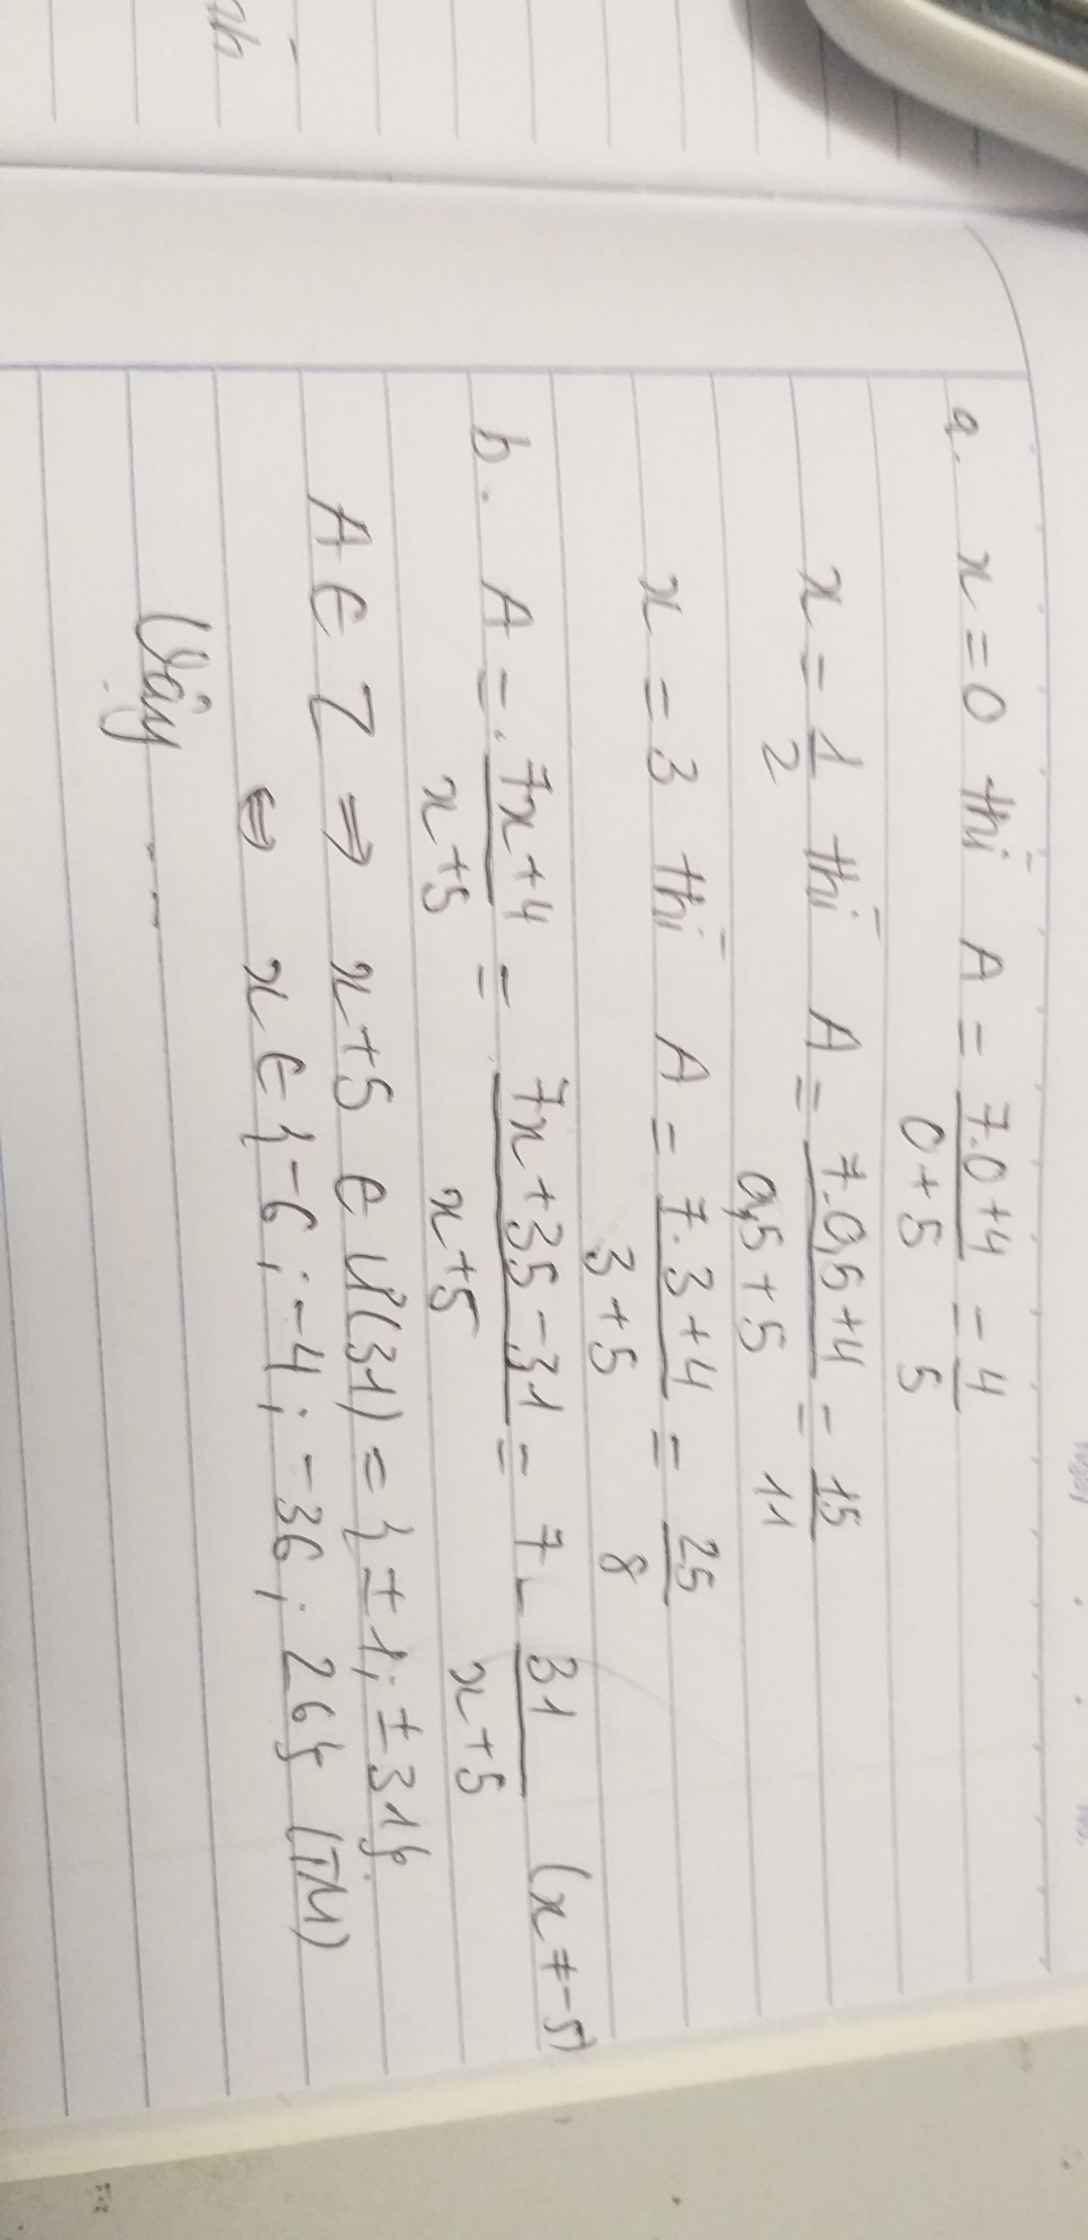 a. x = 0 thì A = \frac{7.0+4}{0+5} = \frac{4}{5}
x = \frac{1}{2} thì A = \frac{7.0,5+4}{0,5+5} = \frac{15}{11}
x = 3 thì A = \frac{7.3+4}{3+5} = \frac{25}{8}
b. A = \frac{7x+4}{x+5} = \frac{7x+35-31}{x+5} = 7 - \frac{31}{x+5} (x ≠ -5)
A ∈ Z ⇒ x+5 ∈ Ư(31) = {±1; ±31}
⇔ x ∈ {-6; -4; -36; 26} (TM)
Vậy ---